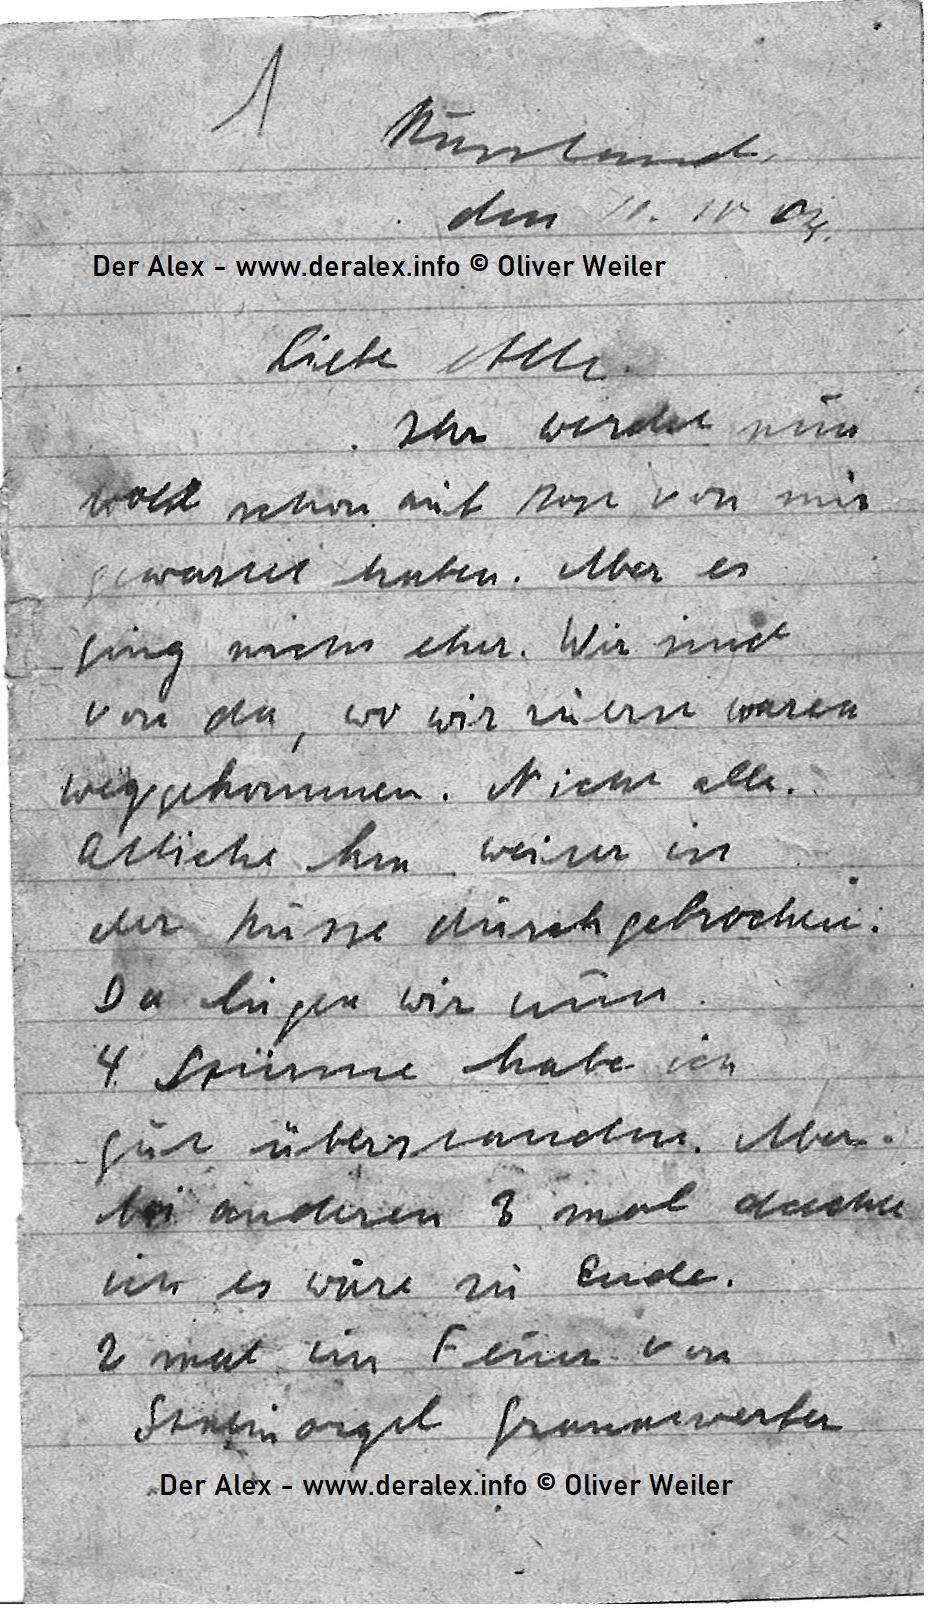 1
Russland
den 11. IV 04.
Der Alex - www.deralex.info © Oliver Weiler
Liebe Alle.
Ihr werdet nun
wohl schon mit Post von mir
gewartet haben. Aber es
ging nicht eher. Wir sind
von da, wo wir zuerst waren
weggekommen. Nicht alle.
Etliche km weiter ist
der Russe durchgebrochen.
Da liegen wir nun.
4 Stürme habe ich
gut überstanden. Aber
bei anderen 3 mal dachte
ich es wäre zu Ende.
2 mal im Feuer von
Stalinorgel Granatwerfer
Der Alex - www.deralex.info © Oliver Weiler